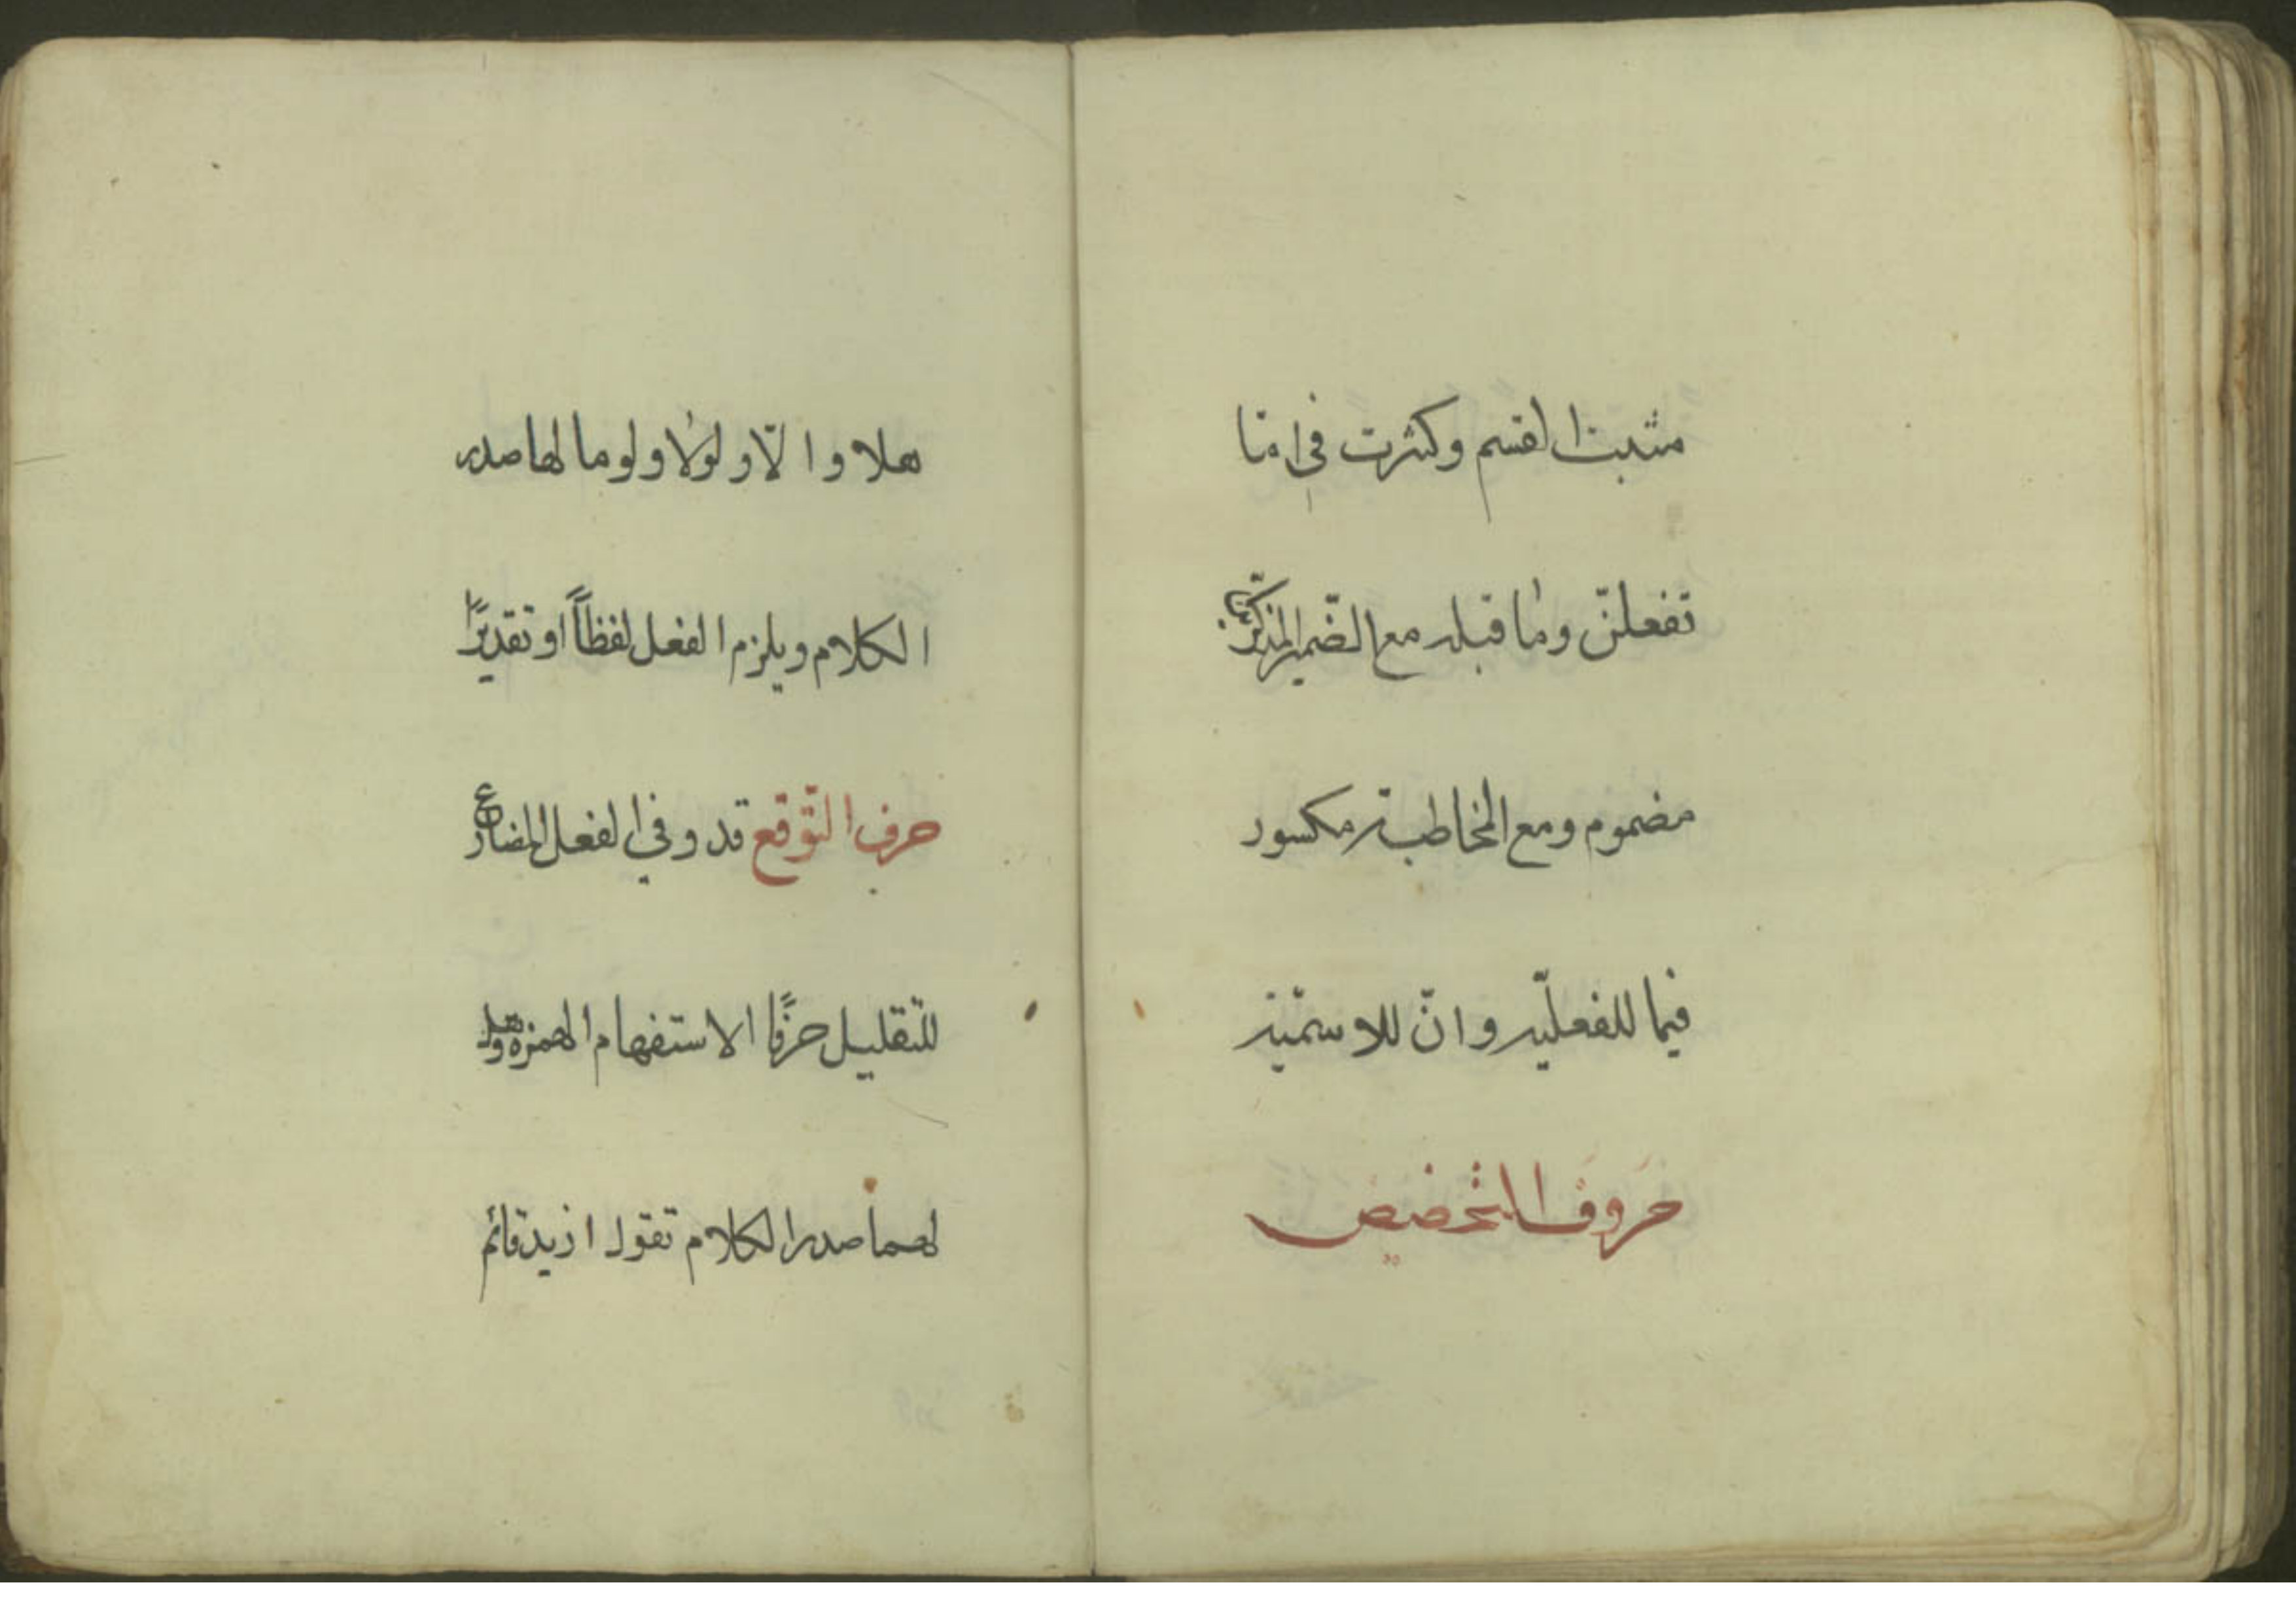 مثبت القسم وكثرت في امّا
تفعلنّ وما قبله مع الضّمير المذكّرين
مضموم ومع المخاطبة مكسور
فيما للفعليّه وانّ للاسميّة
حروف التخضيض
هلا والّا ولولا ولوما لها صدر
الكلام ويلزم الفعل لفظاً او تقديرًا
حرف التّوقع قد وفي الفعل المضارع
للتّقليل حرفا الاستفهام الهمزه وهل
لهما صدر الكلام تقول ازيد قائم